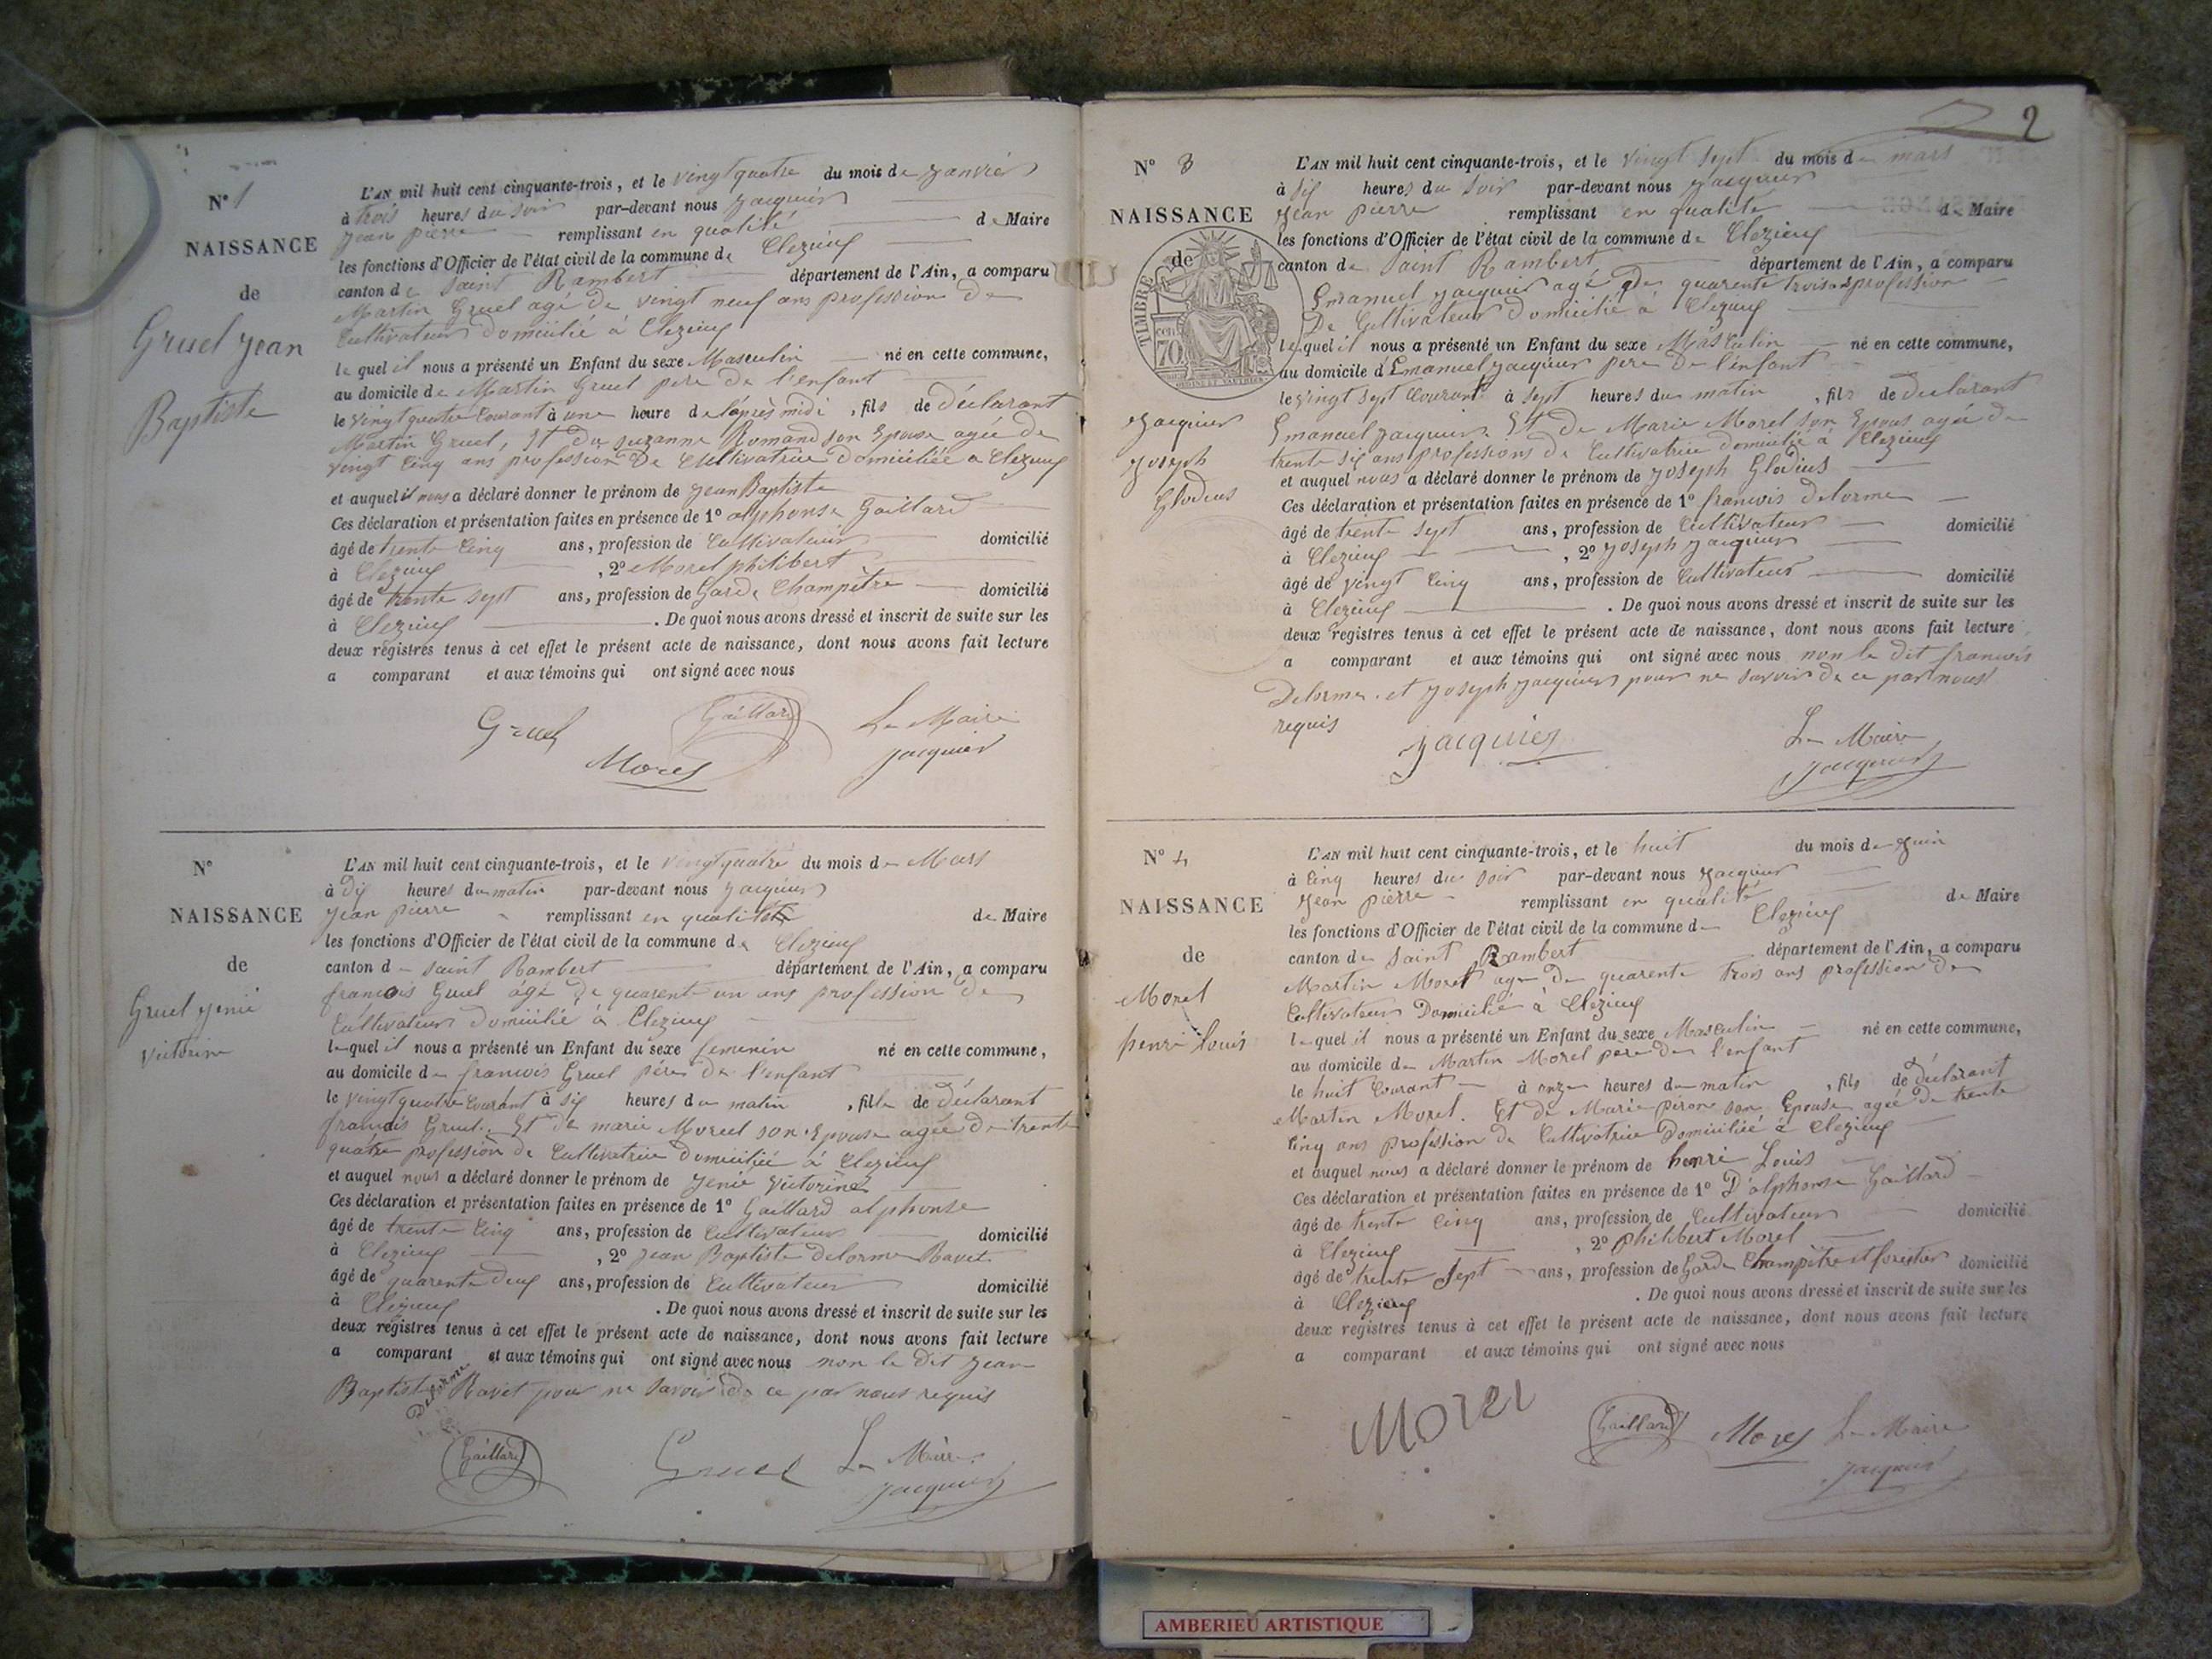 N° 1
NAISSANCE
de
Gruel Jean
Baptiste
L'AN mil huit cent cinquante-trois, et le vingt quatre du mois de Janvier
à trois heures du soir par-devant nous Jacquier
Jean pierre remplissant en qualité de Maire
les fonctions d'Officier de l'état civil de la commune de Clezieux
canton de Saint Rambert département de l'Ain, a comparu
Martin Gruel agé de vingt neuf ans profession de
Cultivateur domicilié à Clezieux
le quel il nous a présenté un Enfant du sexe Masculin né en cette commune,
au domicile de Martin Gruel pere de l'enfant
le vingt quatre Courant à une heure de l'après midi, fils de déclarant
Martin Gruel, Et de suzanne Romand son Epouse agée de
vingt Cinq ans profession De Cultivatrice domiciliée a Clezieux
et auquel il nous a déclaré donner le prénom de Jean Baptiste
Ces déclaration et présentation faites en présence de 1° alphonse Gaillard
âgé de trente Cinq ans, profession de Cultivateur domicilié
à Clezieux, 2° Morel philibert
âgé de trente sept ans, profession de Garde Champêtre domicilié
à Clezieux. De quoi nous avons dressé et inscrit de suite sur les
deux registres tenus à cet effet le présent acte de naissance, dont nous avons fait lecture
a comparant et aux témoins qui ont signé avec nous
Gruel Gaillard Le Maire
Morel Jacquier
N°
NAISSANCE
de
Gruel Jenie
victorine
L'AN mil huit cent cinquante-trois, et le vingt quatre du mois de Mars
à dix heures du matin par-devant nous Jacquier
Jean pierre remplissant en qualité de Maire
les fonctions d'Officier de l'état civil de la commune de Clezieux
canton de Saint Rambert département de l'Ain, a comparu
françois Gruel agé de quarente un ans profession de
Cultivateur domicilié à Clezieux
le quel il nous a présenté un Enfant du sexe femenin né en cette commune,
au domicile de francois Gruel père de l'enfant
le vingt quatre courant à six heures du matin, fille de déclarant
françois Gruel. Et de marie Morel son Epouse agée de trente
quatre profession de Cultivatrice domiciliée à Clezieux
et auquel nous a déclaré donner le prénom de Jenie victorine
Ces déclaration et présentation faites en présence de 1° Gaillard alphonse
âgé de trente Cinq ans, profession de Cultivateur domicilié
à Clezieux, 2° Jean Baptiste delorme Ravet
âgé de quarente deux ans, profession de Cultivateur domicilié
à Clezieux. De quoi nous avons dressé et inscrit de suite sur les
deux registres tenus à cet effet le présent acte de naissance, dont nous avons fait lecture
a comparant et aux témoins qui ont signé avec nous non le dit Jean
Baptiste Delorme Ravet pour ne savoir de ce par nous requis
Gaillard Gruel Le Maire
Jacquier
2
N° 3
NAISSANCE
de
TIMBRE
cen
70
Jacquier
Joseph
Glodius
L'AN mil huit cent cinquante-trois, et le vingt sept du mois de mars
à six heures du soir par-devant nous Jacquier
Jean pierre remplissant en qualité de Maire
les fonctions d'Officier de l'état civil de la commune de Clezieux
canton de Saint Rambert département de l'Ain, a comparu
Emanuel Jacquier agé de quarente trois ans profession
De Cultivateur domicilié à Clezieux
le quel il nous a présenté un Enfant du sexe Masculin né en cette commune,
au domicile d'Emanuel Jacquier pere de l'enfant
le vingt sept Courant à sept heures du matin, fils de déclarant
Emanuel Jacquier. Et De Marie Morel son Epouse agée de
trente six ans profession de Cultivatrice domiciliée a Clezieux
et auquel nous a déclaré donner le prénom de Joseph Glodius
Ces déclaration et présentation faites en présence de 1° francois delorme
âgé de trente sept ans, profession de Cultivateur domicilié
à Clezieux, 2° Joseph Jacquier
âgé de vingt Cinq ans, profession de Cultivateur domicilié
à Clezieux. De quoi nous avons dressé et inscrit de suite sur les
deux registres tenus à cet effet le présent acte de naissance, dont nous avons fait lecture
a comparant et aux témoins qui ont signé avec nous non le dit francois
Delorme et Joseph Jacquier pour ne savoir de ce par nous
requis
Jacquier Le Maire
Jacquier
N° 4
NAISSANCE
de
Morel
henri Louis
L'AN mil huit cent cinquante-trois, et le huit du mois de Juin
à Cinq heures du soir par-devant nous Jacquier
Jean pierre remplissant en qualité de Maire
les fonctions d'Officier de l'état civil de la commune de Clezieux
canton de Saint Rambert département de l'Ain, a comparu
Martin Morel age de quarente trois ans profession de
Cultivateur Domicilié à Clezieux
le quel il nous a présenté un Enfant du sexe Masculin né en cette commune,
au domicile de Martin Morel pere de l'enfant
le huit Courant à onze heures du matin, fils de déclarant
Martin Morel. Et de Marie péron son Epouse agée de trente
Cinq ans profession de Cultivatrice Domiciliée à Clezieux
et auquel nous a déclaré donner le prénom de henri Louis
Ces déclaration et présentation faites en présence de 1° D'alphonse Gaillard
âgé de trente Cinq ans, profession de Cultivateur domicilié
à Clezieux, 2° Philibert Morel
âgé de trente Sept ans, profession de Garde Champêtre et forestier domicilié
à Clezieux. De quoi nous avons dressé et inscrit de suite sur les
deux registres tenus à cet effet le présent acte de naissance, dont nous avons fait lecture
a comparant et aux témoins qui ont signé avec nous
Morel Gaillard Morel Le Maire
Jacquier
AMBERIEU ARTISTIQUE